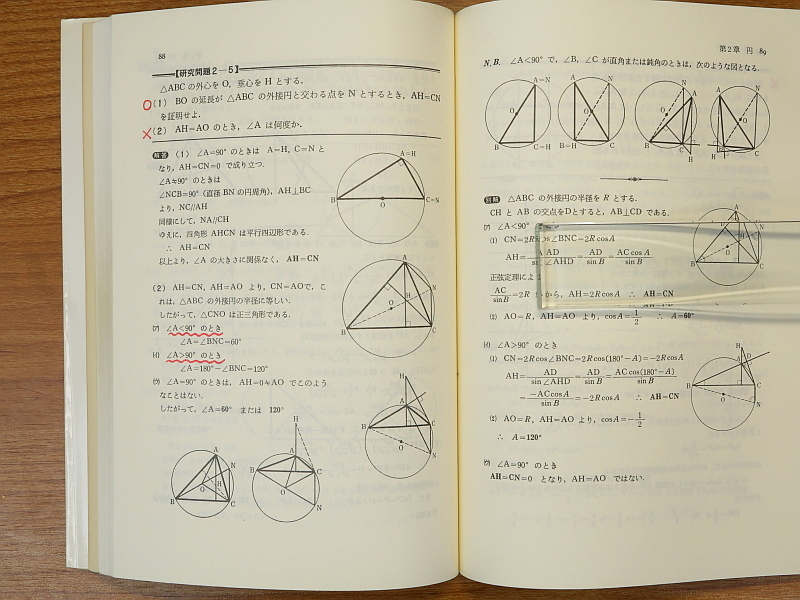 88
【研究問題2−5】
△ABCの外心をO，垂心をHとする．
(1) BOの延長が△ABCの外接円と交わる点をNとするとき，AH=CN
を証明せよ．
(2) AH=AOのとき，∠Aは何度か．
解答 (1) ∠A=90°のときは A=H, C=Nと
なり，AH=CN=0で成り立つ．
∠A≠90°のときは
∠NCB=90°(直径BNの円周角)，AH⊥BC
より，NC//AH
同様にして，NA//CH
ゆえに，四角形AHCNは平行四辺形である．
∴ AH=CN
以上より，∠Aの大きさに関係なく，AH=CN
(2) AH=CN, AH=AOより，CN=AOで，こ
れは，△ABCの外接円の半径に等しい．
したがって，△CNOは正三角形である．
(ア) ∠A<90°のとき
∠A=∠BNC=60°
(イ) ∠A>90°のとき
∠A=180°−∠BNC=120°
(ウ) ∠A=90°のときは，AH=0≠AOでこのよう
なことはない．
したがって，∠A=60° または 120°
A=H
B
O
C=N
A
N
O
H
B
C
H
A
B
C
O
N
A
N
O
H
B
C
H
A
B
C
O
N
第2章 円 89
N.B. ∠A<90°で，∠B, ∠Cが直角または鈍角のときは，次のような図となる．
A=N
O
B
C=H
A
N
O
B=H
C
N
A
O
B
C
H
A
N
O
H
B
C
別解 △ABCの外接円の半径をRとする．
CHとABの交点をDとすると，AB⊥CDである．
(ア) ∠A<90°
(1) CN=2R cos∠BNC=2R cosA
AH=AD/sin∠AHD=AD/sinB=AC cosA/sinB
正弦定理によ
AC/sinB=2R から，AH=2R cosA ∴ AH=CN
(2) AO=R, AH=AOより，cosA=1/2 ∴ A=60°
A
D
N
O
H
B
C
(イ) ∠A>90°のとき
(1) CN=2R cos∠BNC=2R cos(180°−A)=−2R cosA
AH=AD/sin∠AHD=AD/sinB=AC cos(180°−A)/sinB
=−AC cosA/sinB=−2R cosA ∴ AH=CN
(2) AO=R, AH=AOより，cosA=−1/2
∴ A=120°
H
A
D
B
C
O
N
(ウ) ∠A=90°のとき
AH=CN=0となり，AH=AOではない．